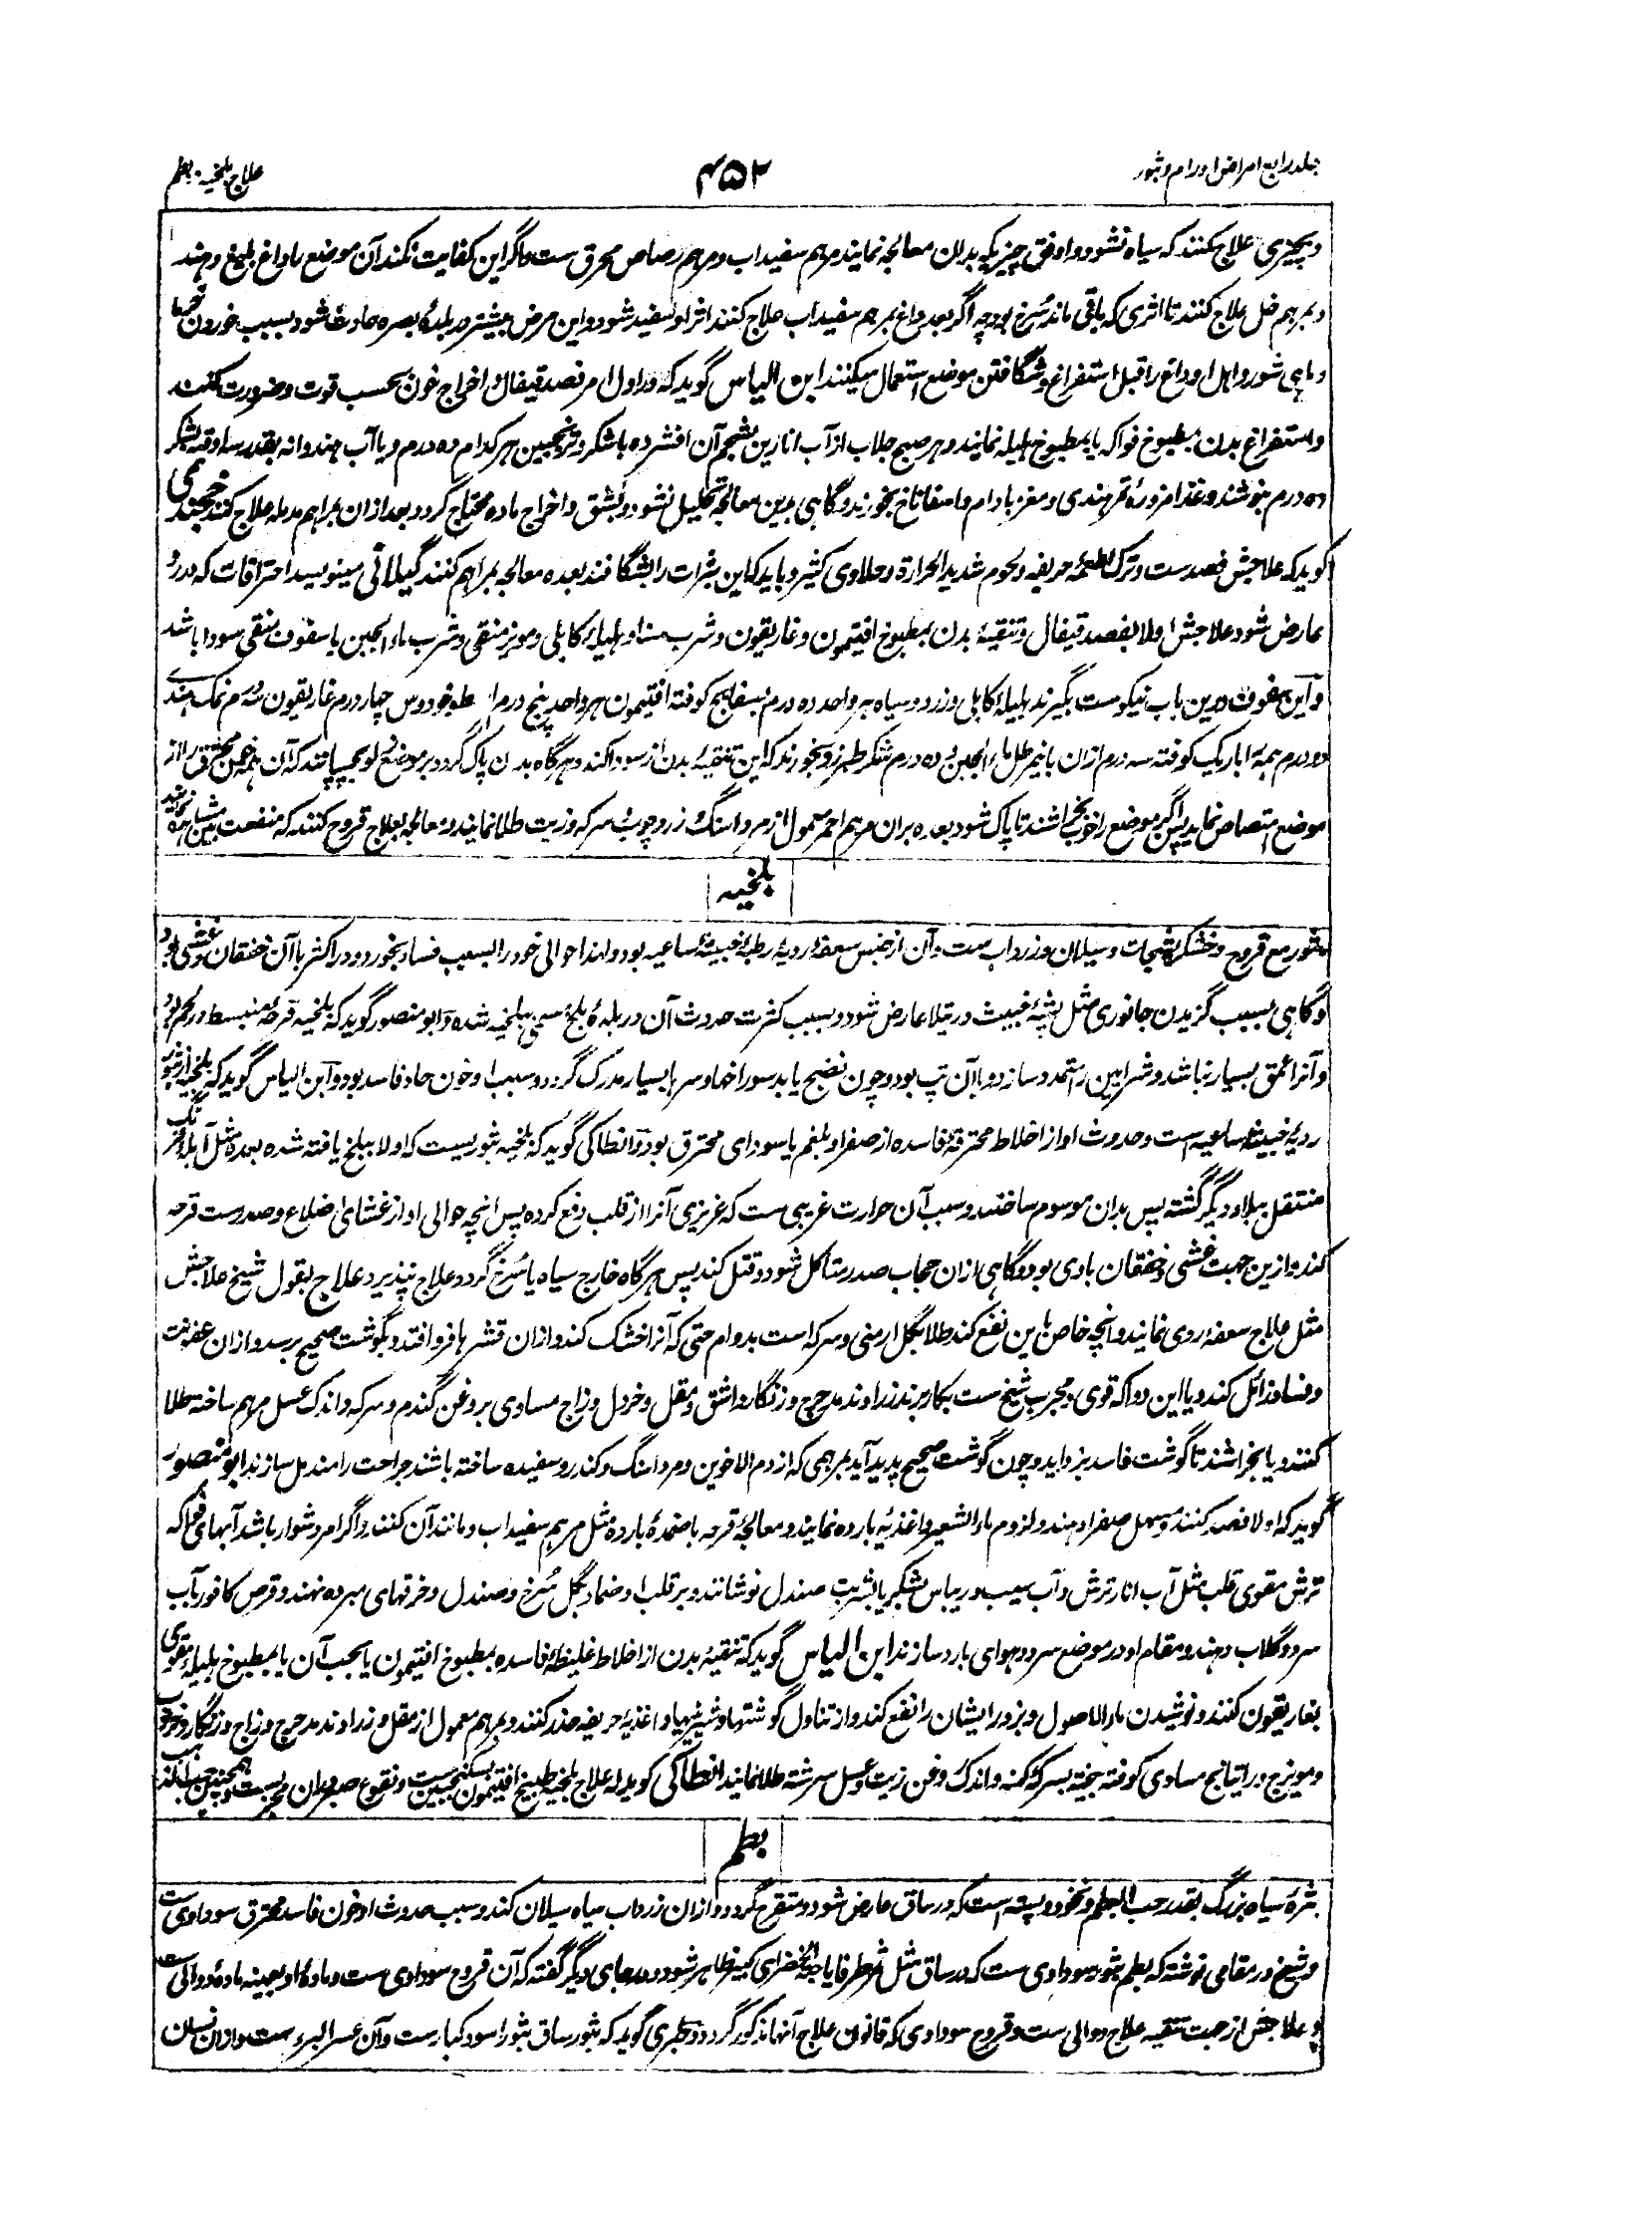 جلد رابع امراض اورام و بثور
۴۵۲
علاج بلخیه، بطم
و بچیزی علاج کنند که سیاه نشود و اوفق چیزیکه بدان معالجه نمایند مرهم سفیداب و مرهم رصاص محرق ست و اگر این کفایت نکند آن موضع را داغ بلیغ دهند
و بمرهم خل علاج کنند تا اثری که باقی ماند سرخ بود چه اگر بعد داغ بمرهم سفیداب علاج کنند اثر او سفید شود و این مرض بیشتر در بلده بصره حادث شود بسبب خوردن خرما
و ماهی شور و اهل او داغ را قبل استفراغ و شگافتن موضع استعمال میکنند ابن الیاس گوید که در اول امر فصد قیفال و اخراج خون بحسب قوت و ضرورت کنند
و استفراغ بدن بمطبوخ فواکه یا بمطبوخ هلیله نمایند و هر صبح جلاب از آب انارین بشحم آن افشرده با شکر و ترنجبین هر کدام ده درم و یا آب هندوانه بقدر سه اوقیه بشکر
ده درم بنوشند و غذا مزوره تمر هندی و مغز بادام و اسفاناخ بخورند و گاهی بدین معالجه تحلیل نشود و بشق و اخراج ماده محتاج گردد و بعد ازان بمراهم مدمله علاج کنند خجندی
گوید که علاجش فصد ست و ترک اطعمه حریفه و لحوم شدید الحرارة و حلاوی کثیر و باید که این بثرات را بشگافند بعده معالجه بمراهم کنند گیلانی مینویسد احتراقات که در رو
عارض شود علاجش اولا بفصد قیفال و تنقیه بدن بمطبوخ افتیمون و غاریقون و شرب سنا و هلیله کابلی و مویز منقی و شرب ماء الجبن با سفوف منقی سودا باشد
و این سفوف درین باب نیکوست بگیرند هلیله کابلی و زرد و سیاه هر واحد ده درم بسفایج کوفته افتیمون هر واحد پنج درم اسطوخودوس چهار درم غاریقون سه درم نمک هندی
دو درم همه را باریک کوفته سه درم ازان با نیم رطل ماء الجبن و ده درم شکر طبرزد بخورند که این تنقیه بدن از سودا کند و هرگاه بدن پاک گردد بر موضع زلو بچسپانند که آن همه خون محترق را از
موضع امتصاص نماید پس اگر موضع را خوب بخراشند تا پاک شود بعده بران مرهم احمر معمول از مرداسنگ و زردچوبه و سرکه و زیت طلا نمایند و معالجه بعلاج قروح کنند که منفعت بین مشاهده نمایند
بلخیه
بثور مع قروح و خشکریشجات و سیلان زرداب ست و آن از جنس سعفه ردیه رطبه خبیثه ساعیه بود و لهذا حوالی خود را بسبب فساد بخورد و در اکثر با آن خفقان و غشی بود
و گاهی بسبب گزیدن جانوری مثل پشه خبیث و رتیلا عارض شود و بسبب کثرت حدوث آن در بلده بلخ مسمی ببلخیه شده و ابو منصور گوید که بلخیه قرحه منبسط در لحم بود
و آنرا عمق بسیار نباشد و شرایین را متمدد سازد و با آن تپ بود و چون نضج یابد سوراخها و سرها بسیار مدرک گردد و سبب او خون حاد فاسد بود و ابن الیاس گوید که بلخیه از بثور
ردیه خبیثه ساعیه ست و حدوث او از اخلاط محترقه فاسده از صفرا و بلغم یا سودای محترق بود و انطاکی گوید که بلخیه بثوریست که اولا ببلخ یافته شده بعده مثل آبله فرنگ
منتقل ببلاد دیگر گشته پس بدان موسوم ساختند و سبب آن حرارت غریبی ست که غریزی آنرا از قلب دفع کرده پس انچه حوالی او از غشای اضلاع و صدرست قرحه
کند و ازین جهت غشی و خفقان بادی بود و گاهی ازان حجاب صدر متاکل شود و قتل کند پس هرگاه خارج سیاه یا سرخ گردد علاج نپذیرد علاج بقول شیخ علاجش
مثل علاج سعفه ردی نمایند و انچه خاص باین نفع کند طلا بگل ارمنی و سرکه است بدوام حتی که آنرا خشک کند و ازان قشرها فرو افتد و بگوشت صحیح برسد و ازان عفونت
و فساد زائل کند و یا این دوا که قوی و مجرب شیخ ست بکار برند زراوند مدحرج و زنگار و اشق و مقل و خردل و زاج مساوی بروغن گندم و سرکه و اندک عسل مرهم ساخته طلا
کنند و یا بخراشند تا گوشت فاسد بزداید و چون گوشت صحیح پدید آید بمرهمی که از دم الاخوین و مرداسنگ و کندر و سفیده ساخته باشند جراحت را مندمل سازند ابو منصور
گوید که اولا فصد کنند و مسهل صفرا دهند و لزوم ماء الشعیر و اغذیه بارده نمایند و معالجه قرحه باضمده بارده مثل مرهم سفیداب و مانند آن کنند و اگر امر دشوار باشد آبهای فواکه
ترش مقوی قلب مثل آب انار ترش و آب سیب و ریباس بشکر یا بشربت صندل نوشانند و بر قلب او ضماد گل سرخ و صندل و خرقهای مبرده نهند و قرص کافور بآب
سرد و گلاب دهند و مقام او در موضع سرد و هوای بارد سازند ابن الیاس گوید که تنقیه بدن از اخلاط غلیظه فاسده بمطبوخ افتیمون یا بحب آن یا بمطبوخ هلیله مقوی
بغاریقون کنند و نوشیدن ماء الاصول و بزور ایشان را نفع کند و از تناول گوشتها و شیرینیها و اغذیه حریفه حذر کنند و بمرهم معمول از مقل و زراوند مدحرج و زاج و زنگار و
و مویزج و راتیانج مساوی کوفته بیخته بسرکه کهنه و اندک روغن زیت و عسل سرشته طلا نمایند انطاکی گوید که علاج بلخیه طبیخ افتیمون بسکنجبین ست و نقوع صبر بران مجرب ست
بطم
بثره سیاه بزرگ بقدر حب البطم و نخود و پسته است که در ساق عارض شود و متقرح گردد و ازان زرداب سیاه سیلان کند و سبب حدوث او خون فاسد محترق سوداوی ست
و شیخ در مقامی نوشته که بطم بثور سوداوی ست که در ساق مثل ثمر طرفا یا حبة الخضرای کبیر ظاهر شود و در جای دیگر گفته که آن قروح سوداوی ست و ماده او بعینه ماده دوالی ست
و علاجش از جهت تنقیه علاج دوالی ست و قروح سوداوی که قانون علاج آنها مذکور گردد و طبری گوید که بثور ساق بثور اسود کبارست و آن عسر البرء ست و ازان نسان